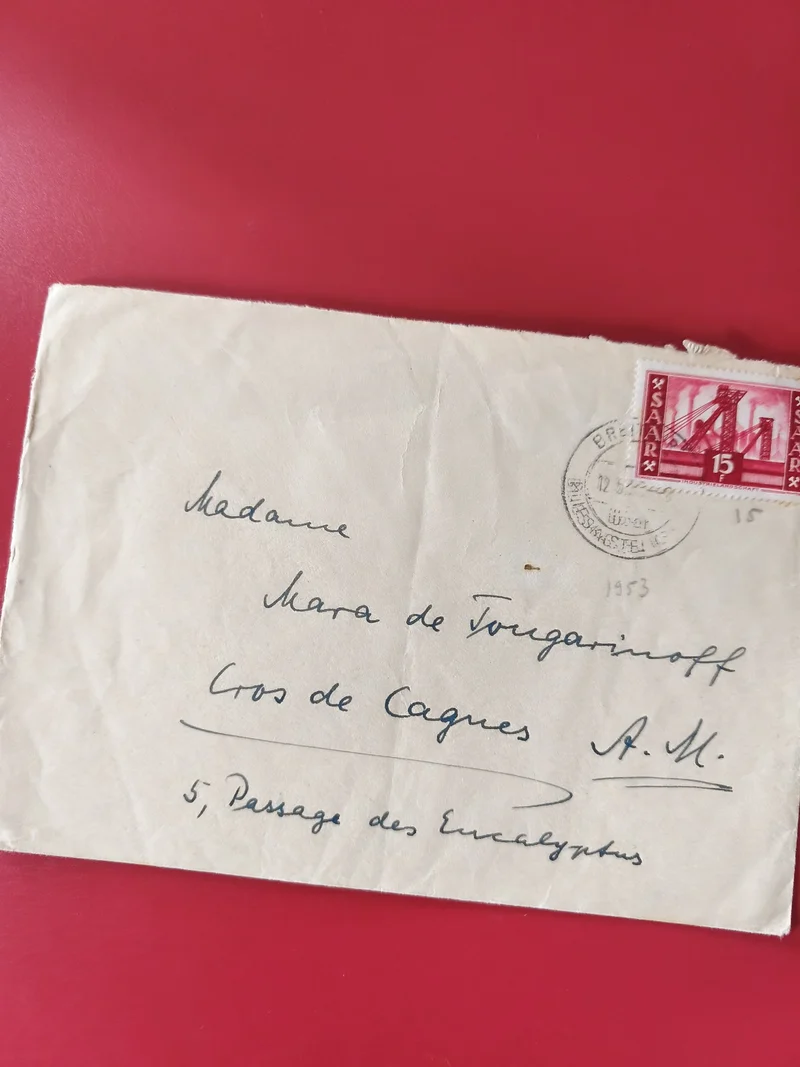 SAAR
SAAR
15
F
15
1953
Madame
Mara de Tougarinoff
Cros de Cagnes A. M.
5, Passage des Eucalyptus